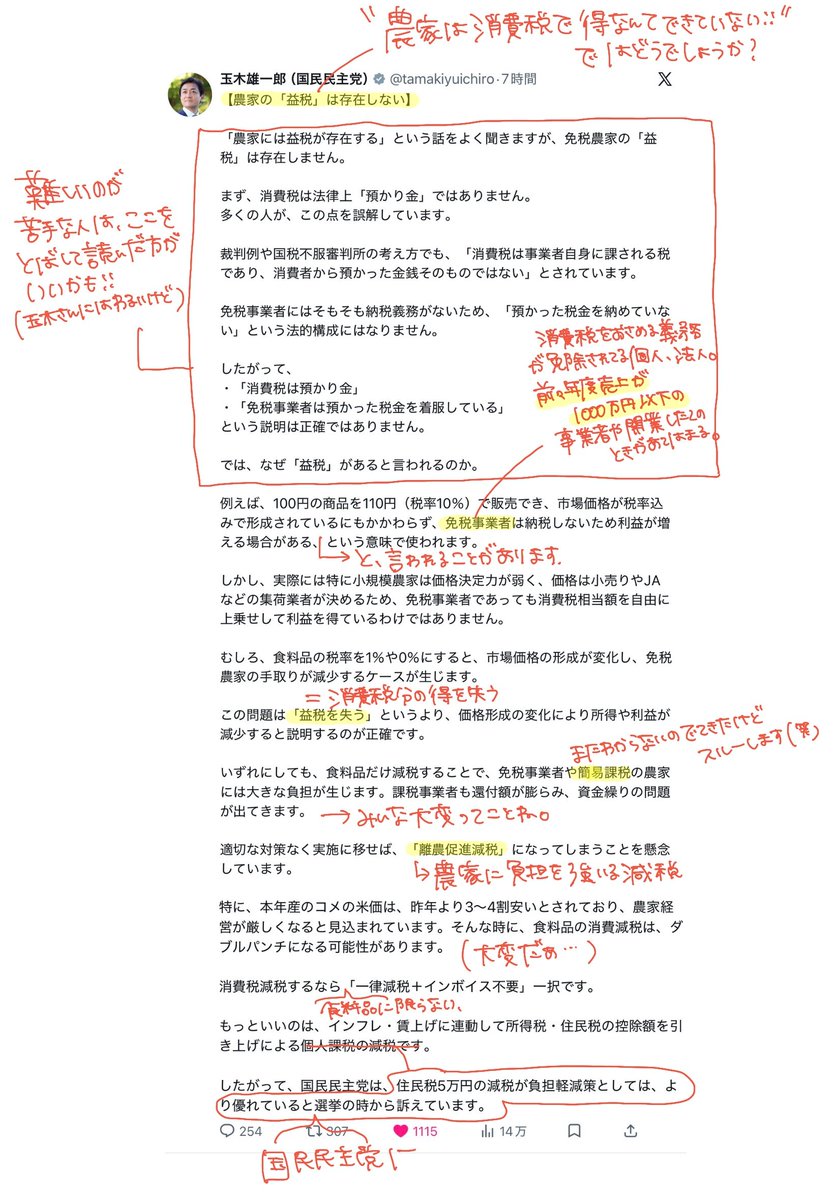 "農家は消費税で得なんてできていない!!"
ではどうでしょうか?
玉木雄一郎（国民民主党） @tamakiyuichiro・7時間
【農家の「益税」は存在しない】
「農家には益税が存在する」という話をよく聞きますが、免税農家の「益
税」は存在しません。
難しいのが
苦手な人は、ここを
とばして読んだ方が
いいかも!!
(玉木さんにはわるいけど)
まず、消費税は法律上「預かり金」ではありません。
多くの人が、この点を誤解しています。
裁判例や国税不服審判所の考え方でも、「消費税は事業者自身に課される税
であり、消費者から預かった金銭そのものではない」とされています。
免税事業者にはそもそも納税義務がないため、「預かった税金を納めていな
い」という法的構成にはなりません。
したがって、
・「消費税は預かり金」
・「免税事業者は預かった税金を着服している」
という説明は正確ではありません。
消費税をおさめる義務
が免除されてる個人、法人。
前々年度売上が
1000万円以下の
事業者や開業したての
ときがあてはまる。
では、なぜ「益税」があると言われるのか。
例えば、100円の商品を110円（税率10%）で販売でき、市場価格が税率込
みで形成されているにもかかわらず、免税事業者は納税しないため利益が増
える場合がある、という意味で使われます。
と、言われることがあります.
しかし、実際には特に小規模農家は価格決定力が弱く、価格は小売りやJA
などの集荷業者が決めるため、免税事業者であっても消費税相当額を自由に
上乗せして利益を得ているわけではありません。
むしろ、食料品の税率を1%や0%にすると、市場価格の形成が変化し、免税
農家の手取りが減少するケースが生じます。
= 消費税分の得を失う
この問題は「益税を失う」というより、価格形成の変化により所得や利益が
減少すると説明するのが正確です。
まだわからないのでてきたけど
スルーします(笑)
いずれにしても、食料品だけ減税することで、免税事業者や簡易課税の農家
には大きな負担が生じます。課税事業者も還付額が膨らみ、資金繰りの問題
が出てきます。
みんな大変ってことね。
適切な対策なく実施に移せば、「離農促進減税」になってしまうことを懸念
しています。
農家に負担を強いる減税
特に、本年産のコメの米価は、昨年より3〜4割安いとされており、農家経
営が厳しくなると見込まれています。そんな時に、食料品の消費減税は、ダ
ブルパンチになる可能性があります。
(大変だぁ…)
消費税減税するなら「一律減税＋インボイス不要」一択です。
食料品に限らない、
もっといいのは、インフレ・賃上げに連動して所得税・住民税の控除額を引
き上げによる個人課税の減税です。
したがって、国民民主党は、住民税5万円の減税が負担軽減策としては、よ
り優れていると選挙の時から訴えています。
254 307 1115 14万
国民民主党に